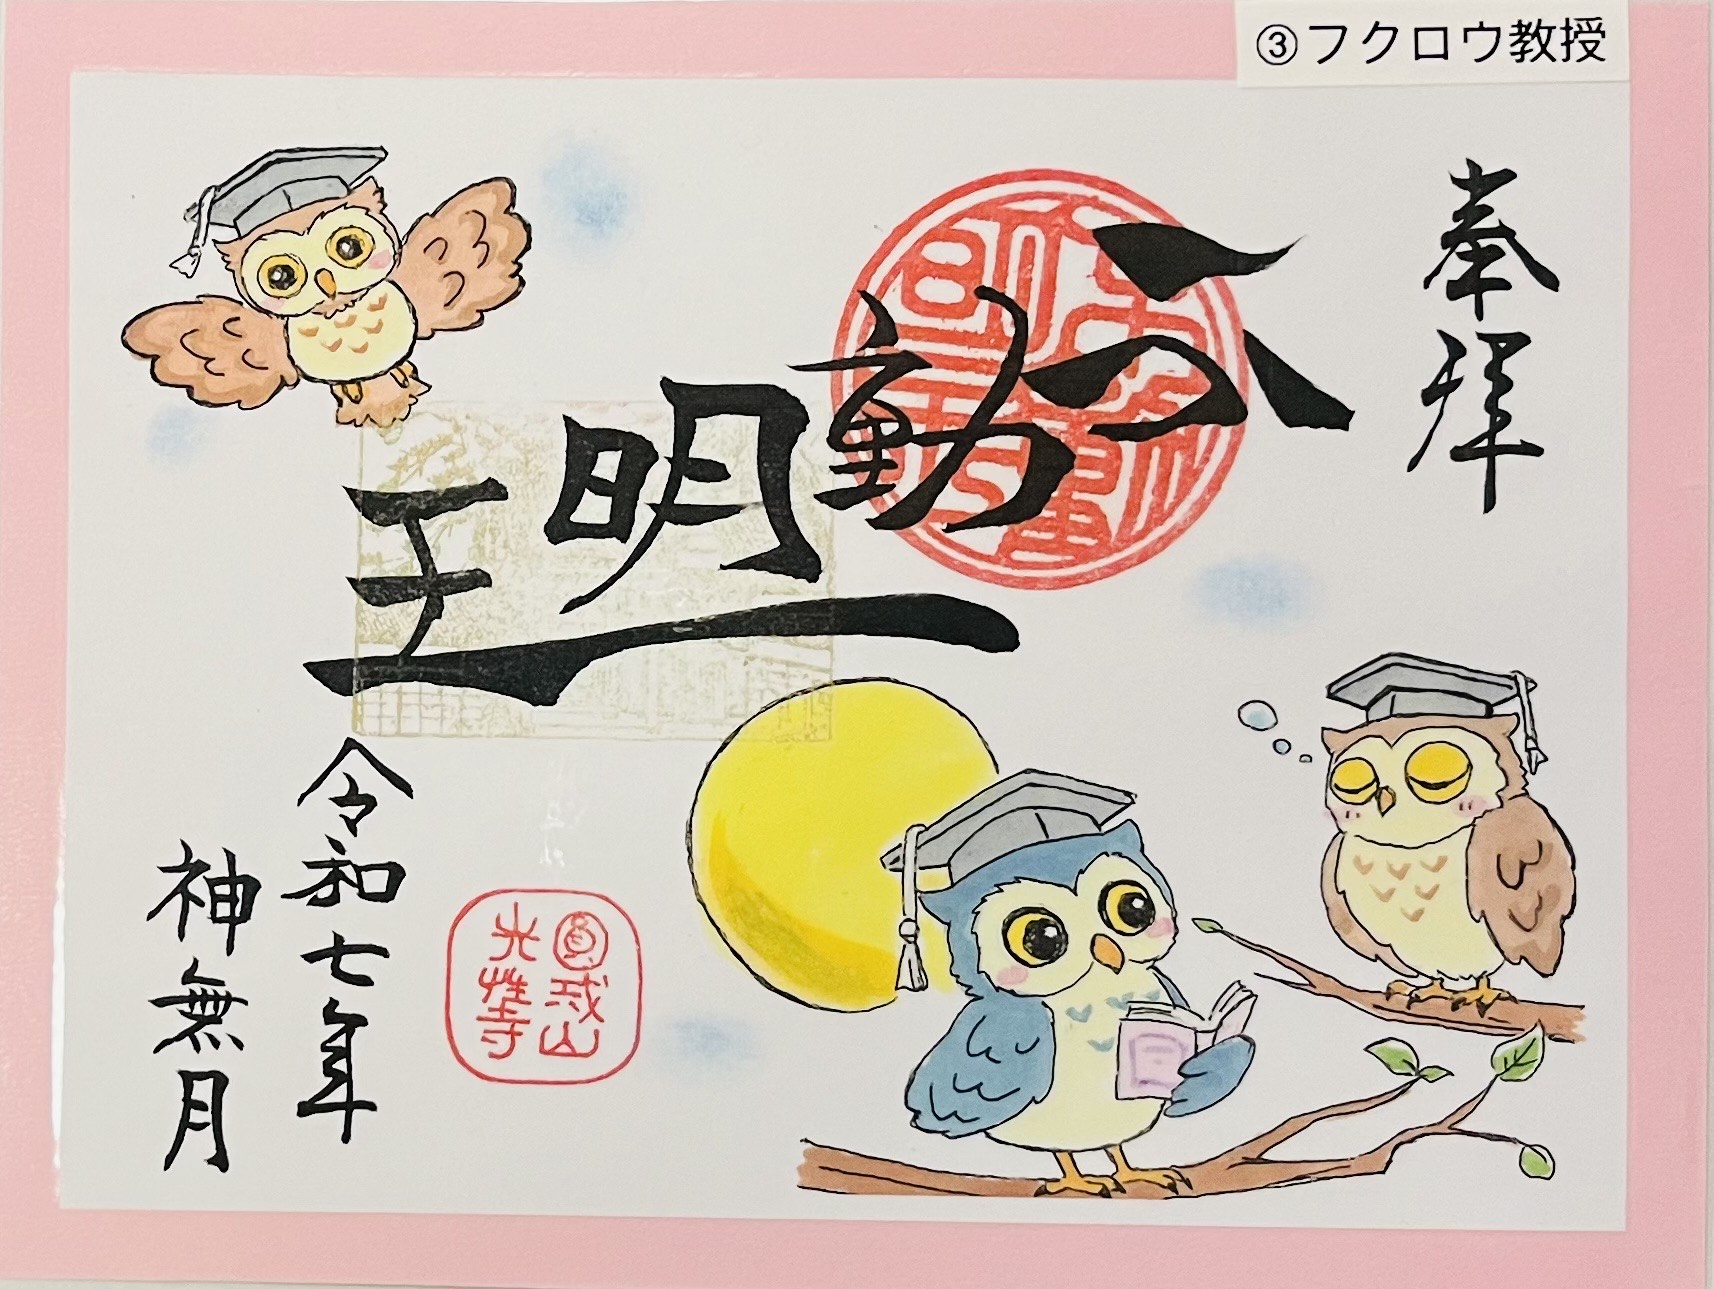 ③フクロウ教授
奉拝
不動明王
令和七年
神無月
圓珠山
光性寺